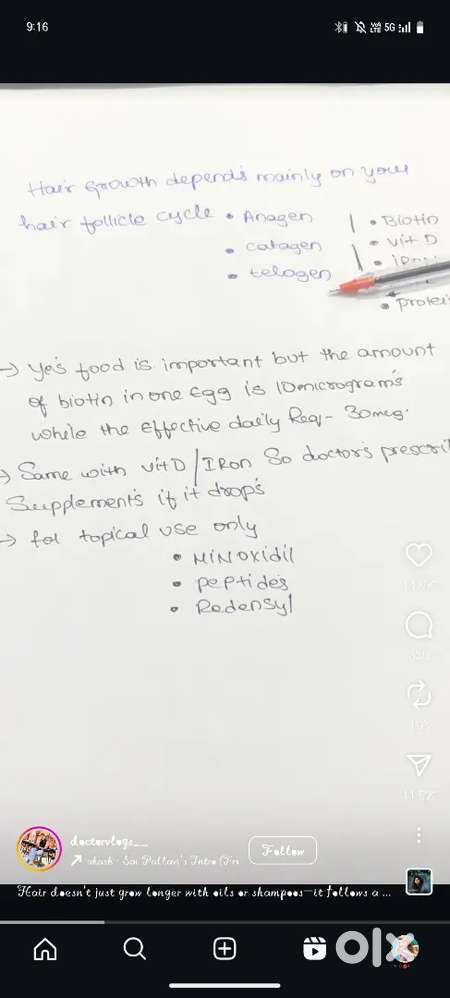 9:16
5G
Hair Growth depends mainly on your
hair follicle cycle • Anagen
• catagen
• telogen
• Biotin
• vit D
• protei
→ Yes food is important but the amount
of biotin in one Egg is 10micrograms
while the effective daily Req - 30mcg.
→ Same with vit D / IRon So doctors prescri
Supplements if it drops
→ for topical use only
• MINOXIDIL
• peptides
• Redensyl
doctorvlogs__
Follow
Hair doesn't just grow longer with oils or shampoos—it follows a ...
olx